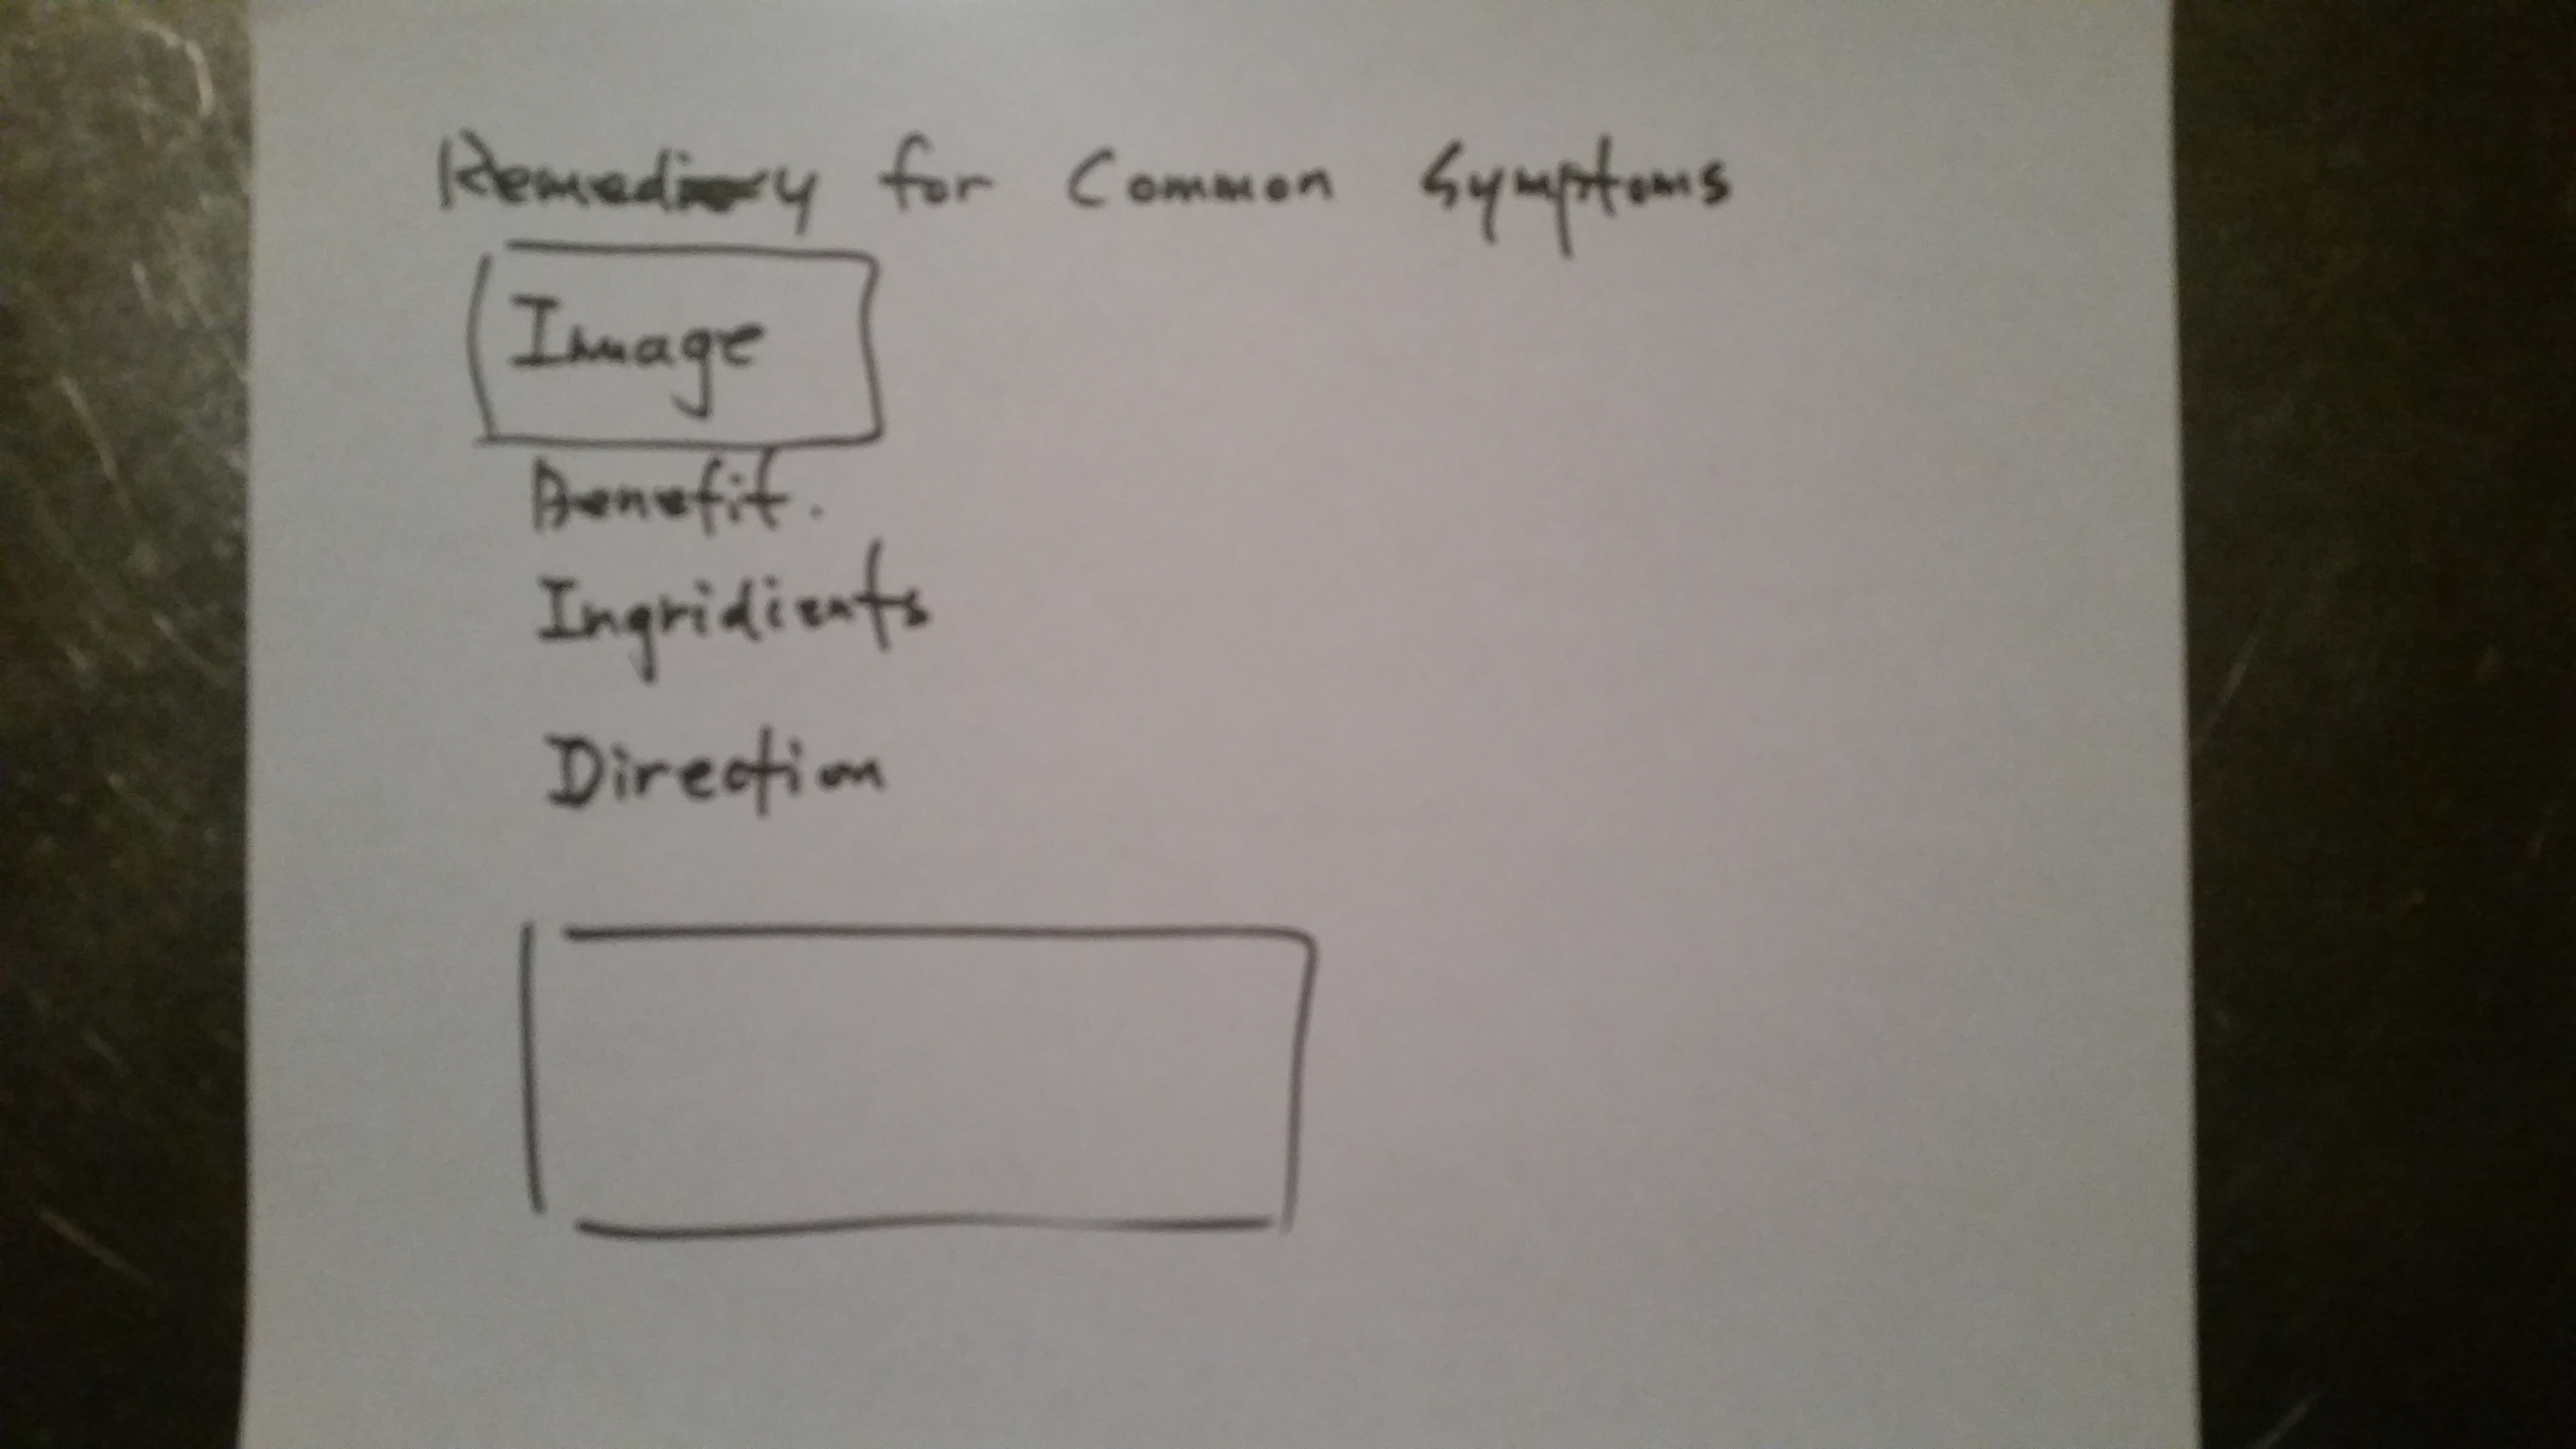 Remedy for Common Symptoms
Image
Benefit.
Ingridients
Direction